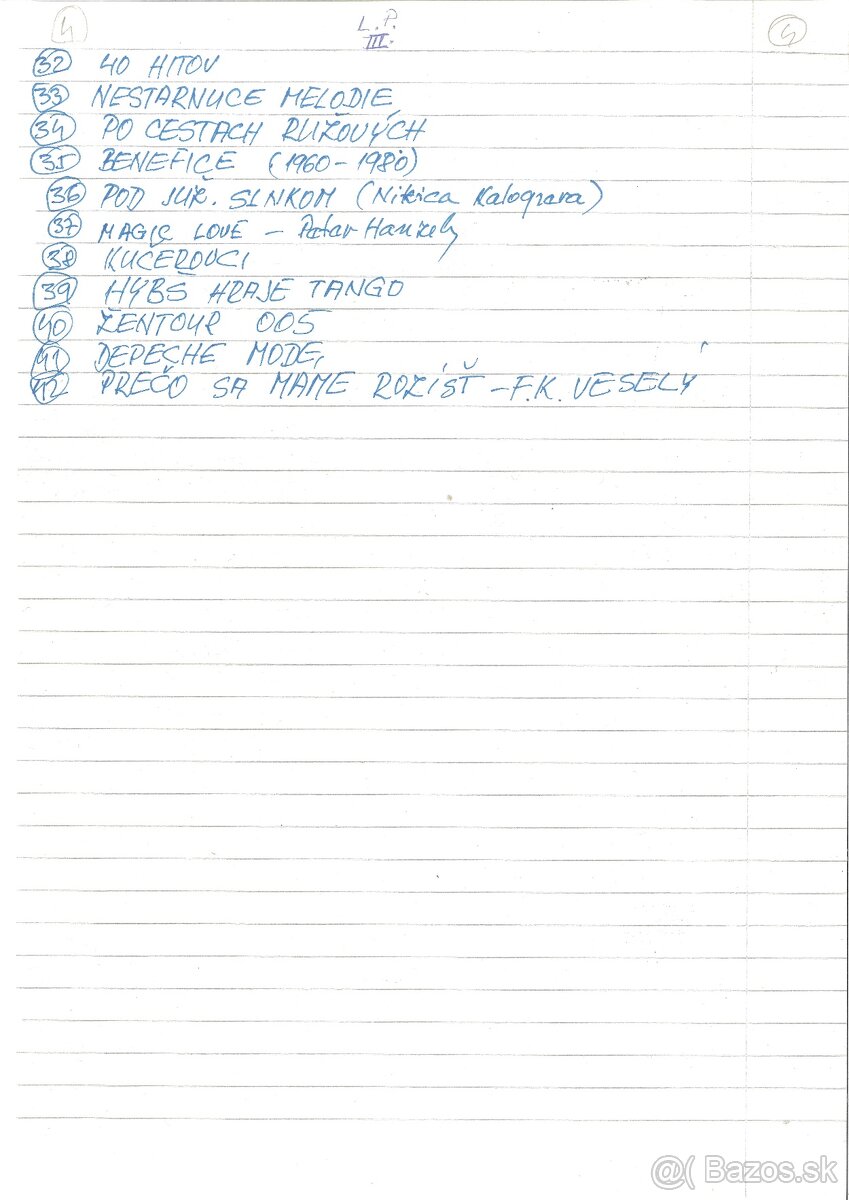 4 L.P. 4
III.
32 40 HITOV
33 NESTARNUCE MELÓDIE
34 PO CESTACH RUŽOVÝCH
35 BENEFICE (1960-1980)
36 POD JUŽ. SLNKOM (Nikica Kalogzera)
37 MAGIC LOVE - Peter Hanzely
38 KUČEROVCI
39 HYBS HRAJE TANGO
40 ŽENTOUR 005
41 DEPECHE MODE,
42 PREČO SA MAME ROZÍSŤ - F.K. VESELÝ
@( Bazos.sk